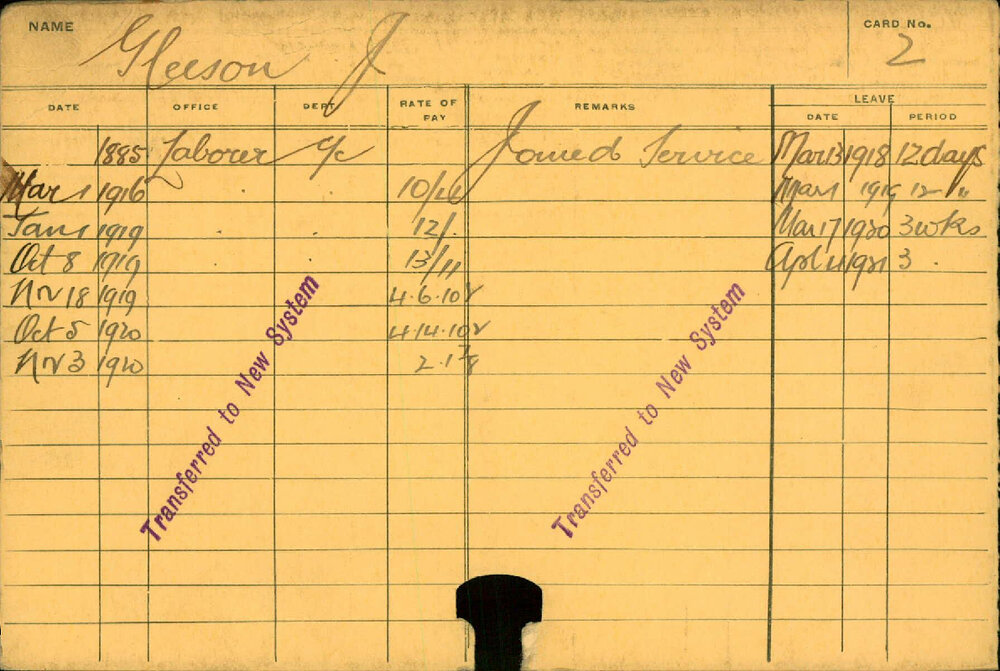 NAME Gleeson J CARD No. 2
DATE OFFICE DEPT RATE OF PAY REMARKS LEAVE
DATE PERIOD
1885 Laborer Joined Service Mar 13 1918 12 days
Mar 1 1916 Mar 1 1919 12 "
Jan 1 1919 12/. Mar 17 1920 3 wks
Oct 8 1919 13/11 Apl 4 1921 3
Nov 18 1919 4.6.10
Oct 5 1920 4.14.10
Nov 3 1920
Transferred to New System
Transferred to New System